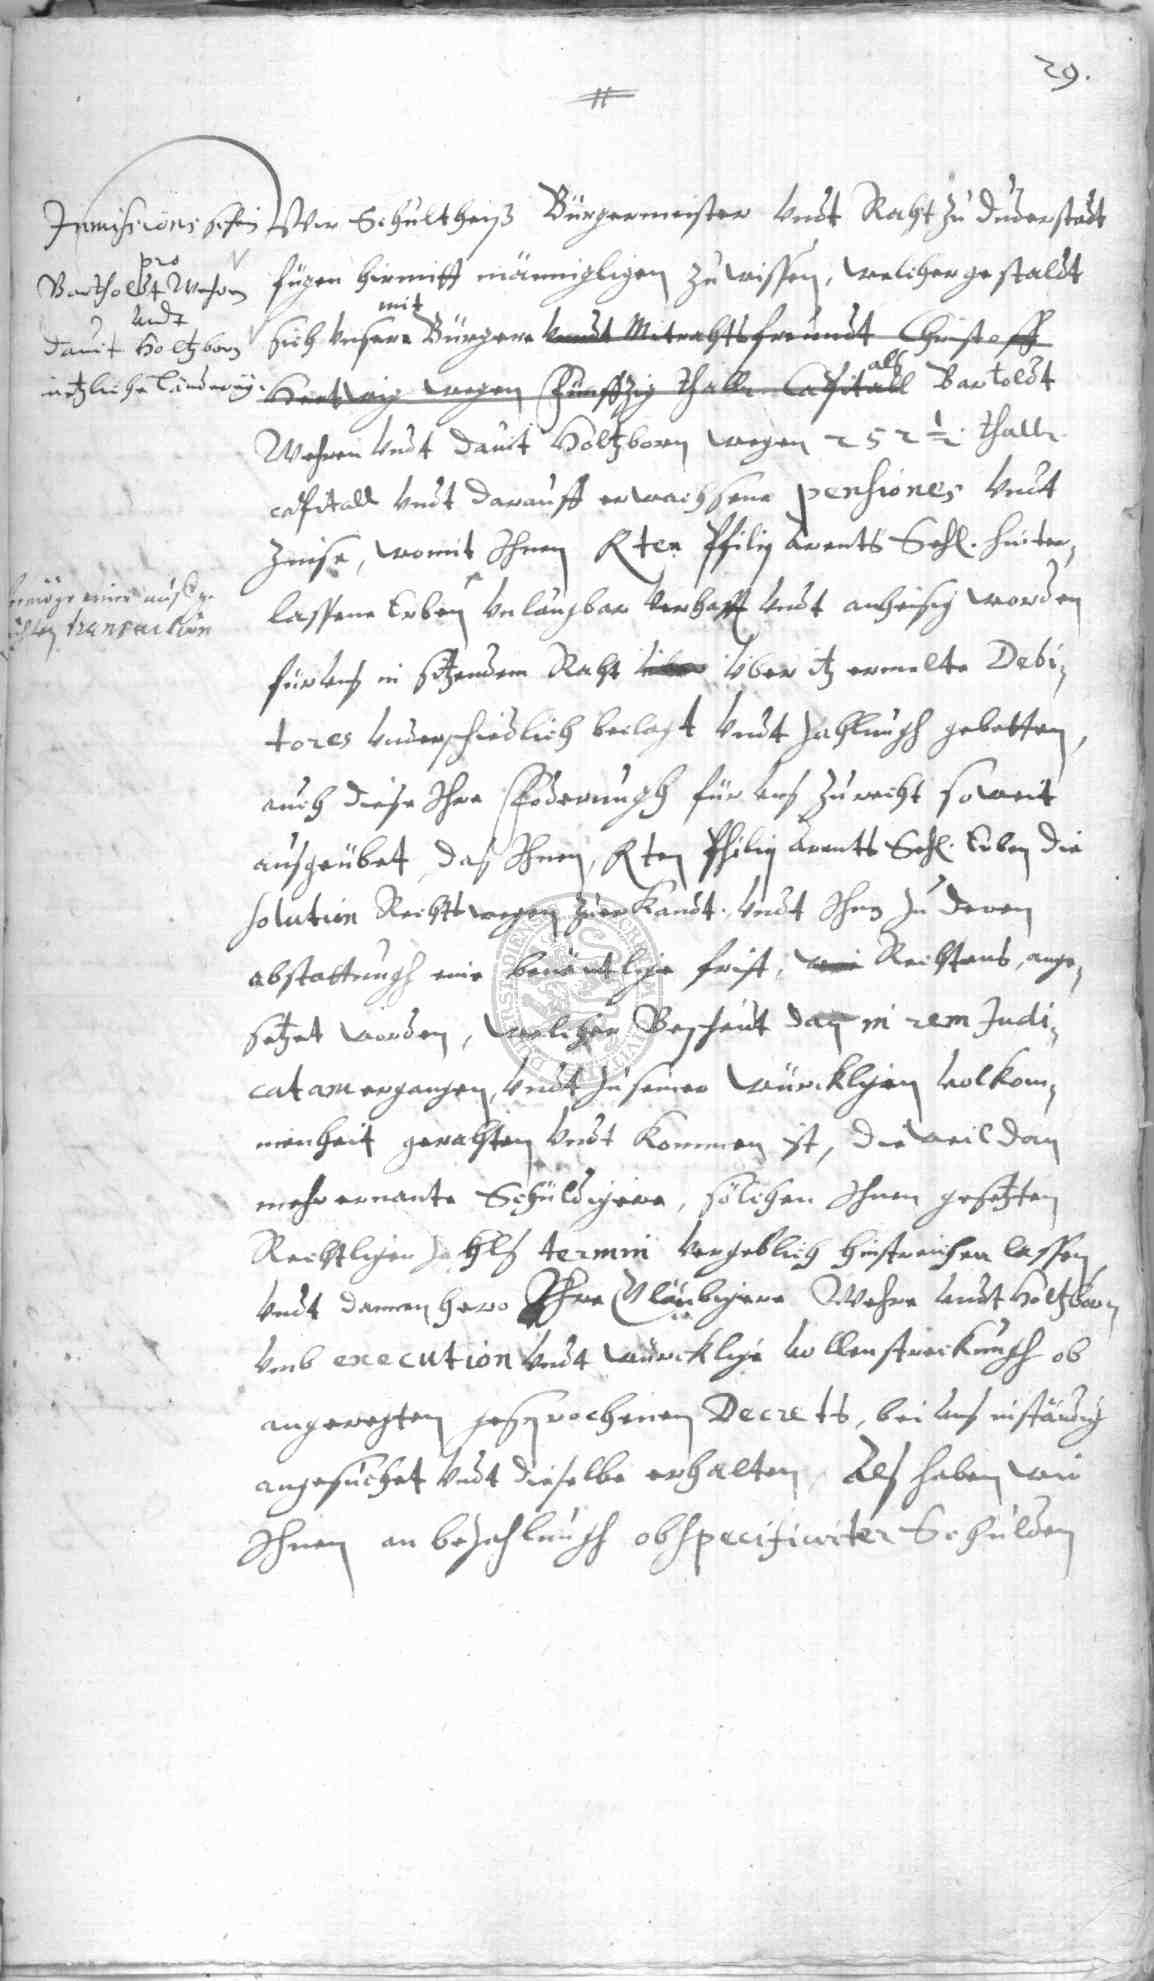 29.
Immissions schein
pro
Bartholdt Wehren
undt
Davit Holtzborn
etzliche länderey.
Wir Schultheiß Bürgermeister undt Raht zu Duderstadt
fügen hirmitt männigligen zu wissen, welcher gestaldt
mit
sich unsere Bürgere undt Mitrahtsfreundt Christoff
Hertwig wegen Fünffzig thaller Capitall als Bartoldt
Wehren undt Davit Holtzborn wegen 252 ½ thaller
capitall undt darauff erwachsene pensiones undt
Zinse, womit Ihnen Kten Philip Arents Sehl. hinter-
lassene Erben unläugbar verhafft undt anheisig worden
vermöge einer auffge-
transaction
für uns in sitzendem Raht über itz ermelte Debi-
tores underschiedlich beclagt undt zahlungh gebetten,
auch diese Ihre Foderungh für uns zu recht soweit
ausgeübet, das Ihnen, Kten Philip Arents Sehl. Erben die
solution Rechts wegen zuerkandt. undt Ihnen zu deren
abstattungh eine benäntlige frist, wie Rechtens, ange-
setzet worden, welcher Bescheidt dan in rem Judi-
catam ergangen, undt zu seiner würckligen volkom-
menheit gerahten undt kommen ist, dieweil dan
mehr ernante Schuldigere, solchen Ihnen gesetzten
Rechtligen Zahls termin vergeblich hinstreichen lassen,
undt dannenhero Ihre Gläubigere Wehre undt Holtzborn
umb execution undt würcklige vollenstreckungh ob
angeregten gesprochenen Decrets, bei uns inständig
angesuchet undt dieselbe erhalten, Als haben wir
Ihnen an bezahlungh obspecificirter Schulden